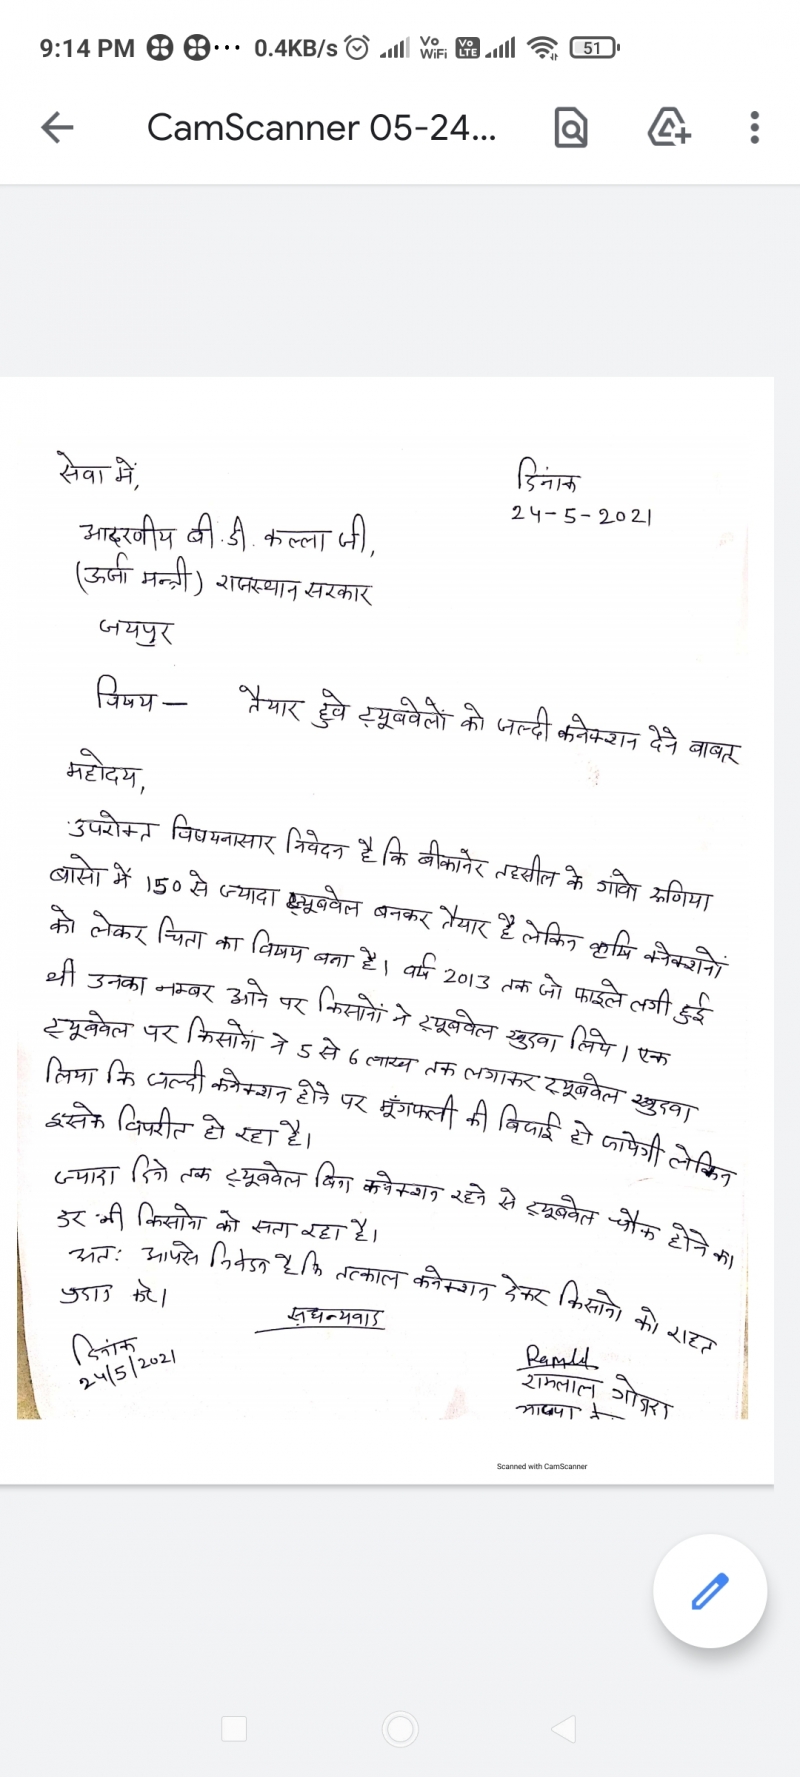 9:14 PM 0.4KB/s Vo WiFi Vo LTE 51
CamScanner 05-24...
सेवा में,
दिनांक
24-5-2021
आदरणीय बी.डी. कल्ला जी,
(ऊर्जा मन्त्री) राजस्थान सरकार
जयपुर
विषय - तैयार हुवे ट्यूबवेलों को जल्दी कनेक्शन देने बाबत
महोदय,
उपरोक्त विषयनासार निवेदन है कि बीकानेर तहसील के गांवो रूणिया
बासो में 150 से ज्यादा ट्यूबवेल बनकर तैयार है लेकिन कृषि कनेक्शनों
को लेकर चिता का विषय बना है। वर्ष 2013 तक जो फाइले लगी हुई
थी उनका नम्बर आने पर किसानों ने ट्यूबवेल खुदवा लिये। एक
ट्यूबवेल पर किसानों ने 5 से 6 लाख तक लगाकर ट्यूबवेल खुदवा
लिया कि जल्दी कनेक्शन होने पर मूँगफली की बिजाई हो जायेगी लेकिन
इसके विपरीत हो रहा है।
ज्यादा दिनो तक ट्यूबवेल बिना कनेक्शन रहने से ट्यूबवेल चौक होने का
डर भी किसानो को सता रहा है।
अतः आपसे निवेदन है कि तत्काल कनेक्शन देकर किसानो को राहत
प्रदान करे।
सधन्यवाद
दिनांक
24/5/2021
रामलाल गोदारा
Scanned with CamScanner